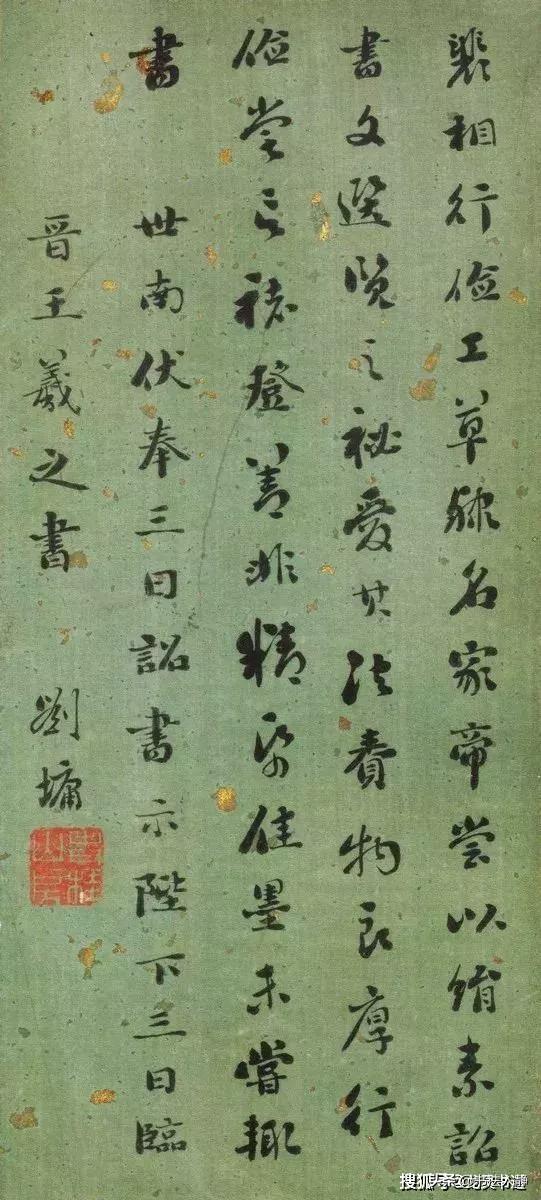 裴相行儉工草隸名家帝嘗以絹素詔
書文選覽之祕愛其法賚物良厚行
儉嘗言褚登善非精筆佳墨未嘗輒
書 世南伏奉三日詔書示陛下三日臨
晋王羲之書 劉墉